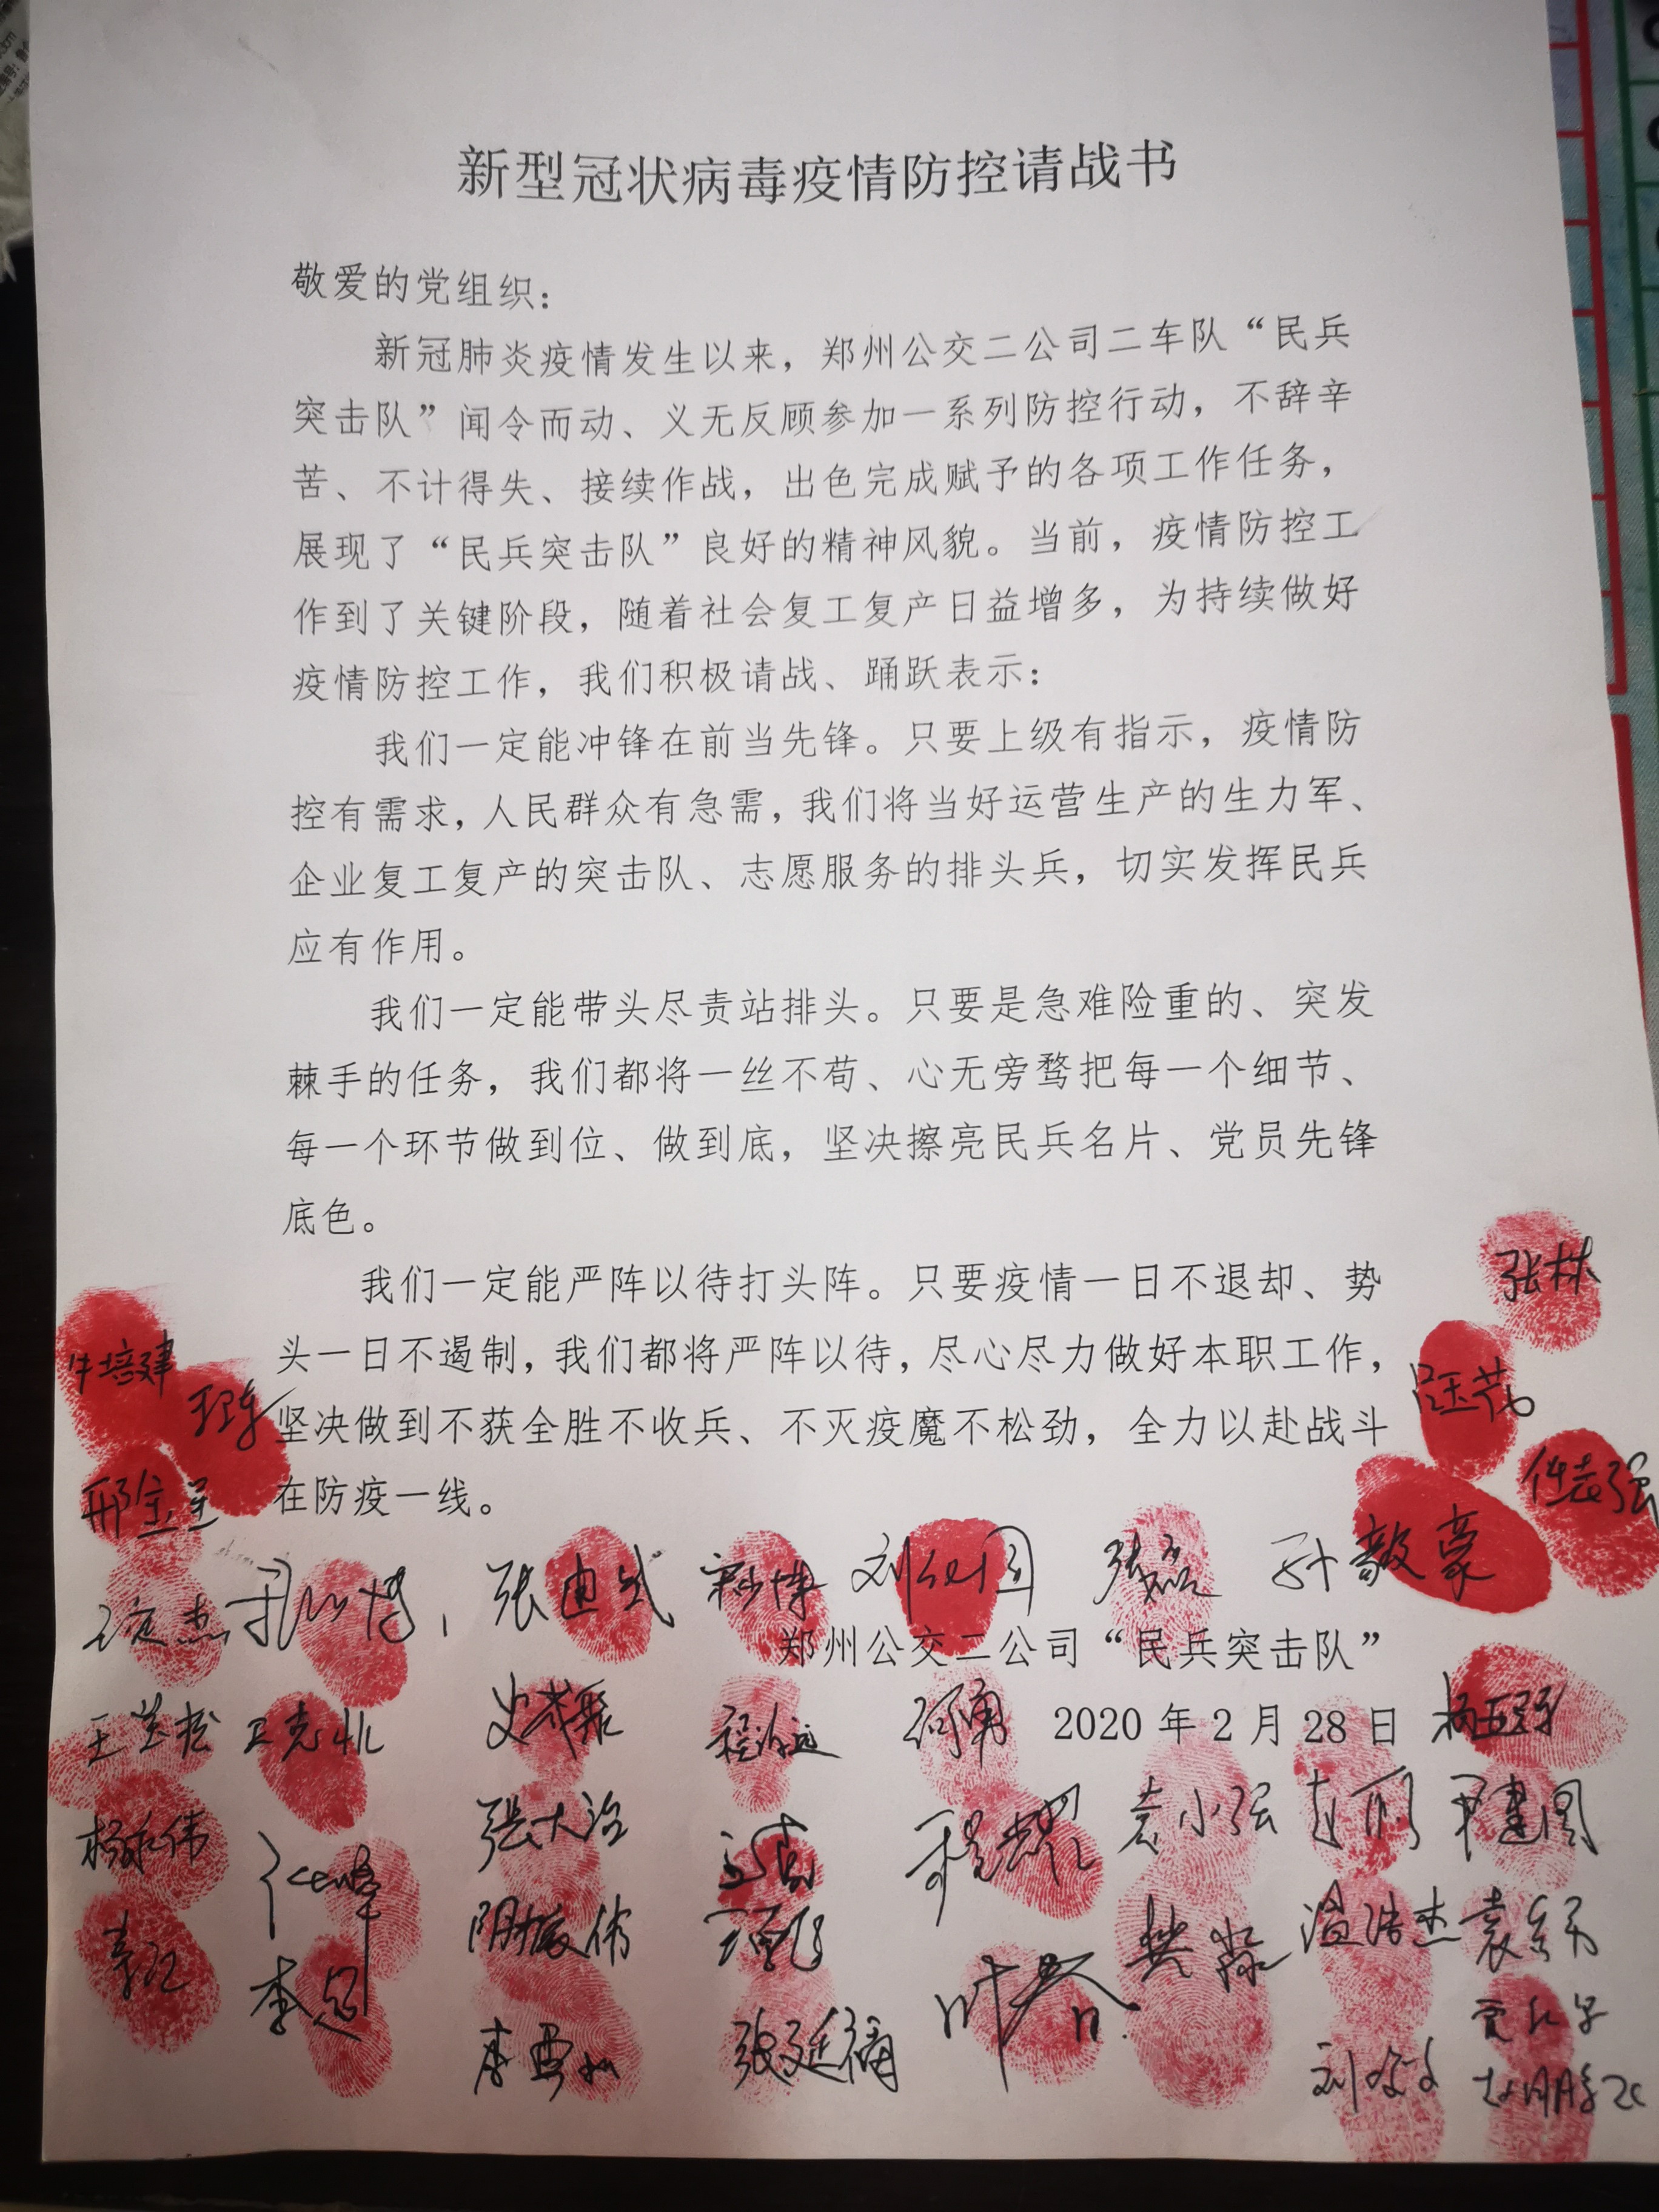 新型冠状病毒疫情防控请战书
敬爱的党组织：
新冠肺炎疫情发生以来，郑州公交二公司二车队“民兵
突击队”闻令而动、义无反顾参加一系列防控行动，不辞辛
苦、不计得失、接续作战，出色完成赋予的各项工作任务，
展现了“民兵突击队”良好的精神风貌。当前，疫情防控工
作到了关键阶段，随着社会复工复产日益增多，为持续做好
疫情防控工作，我们积极请战、踊跃表示：
我们一定能冲锋在前当先锋。只要上级有指示，疫情防
控有需求，人民群众有急需，我们将当好运营生产的生力军、
企业复工复产的突击队、志愿服务的排头兵，切实发挥民兵
应有作用。
我们一定能带头尽责站排头。只要是急难险重的、突发
棘手的任务，我们都将一丝不苟、心无旁骛把每一个细节、
每一个环节做到位、做到底，坚决擦亮民兵名片、党员先锋
底色。
我们一定能严阵以待打头阵。只要疫情一日不退却、势
头一日不遏制，我们都将严阵以待，尽心尽力做好本职工作，
坚决做到不获全胜不收兵、不灭疫魔不松劲，全力以赴战斗
在防疫一线。
张林
牛培建
孙毅豪
张迪
郑州公交二公司“民兵突击队”
2020 年 2 月 28 日
张大治
袁小强
杨永伟
樊淼
李江
张廷福